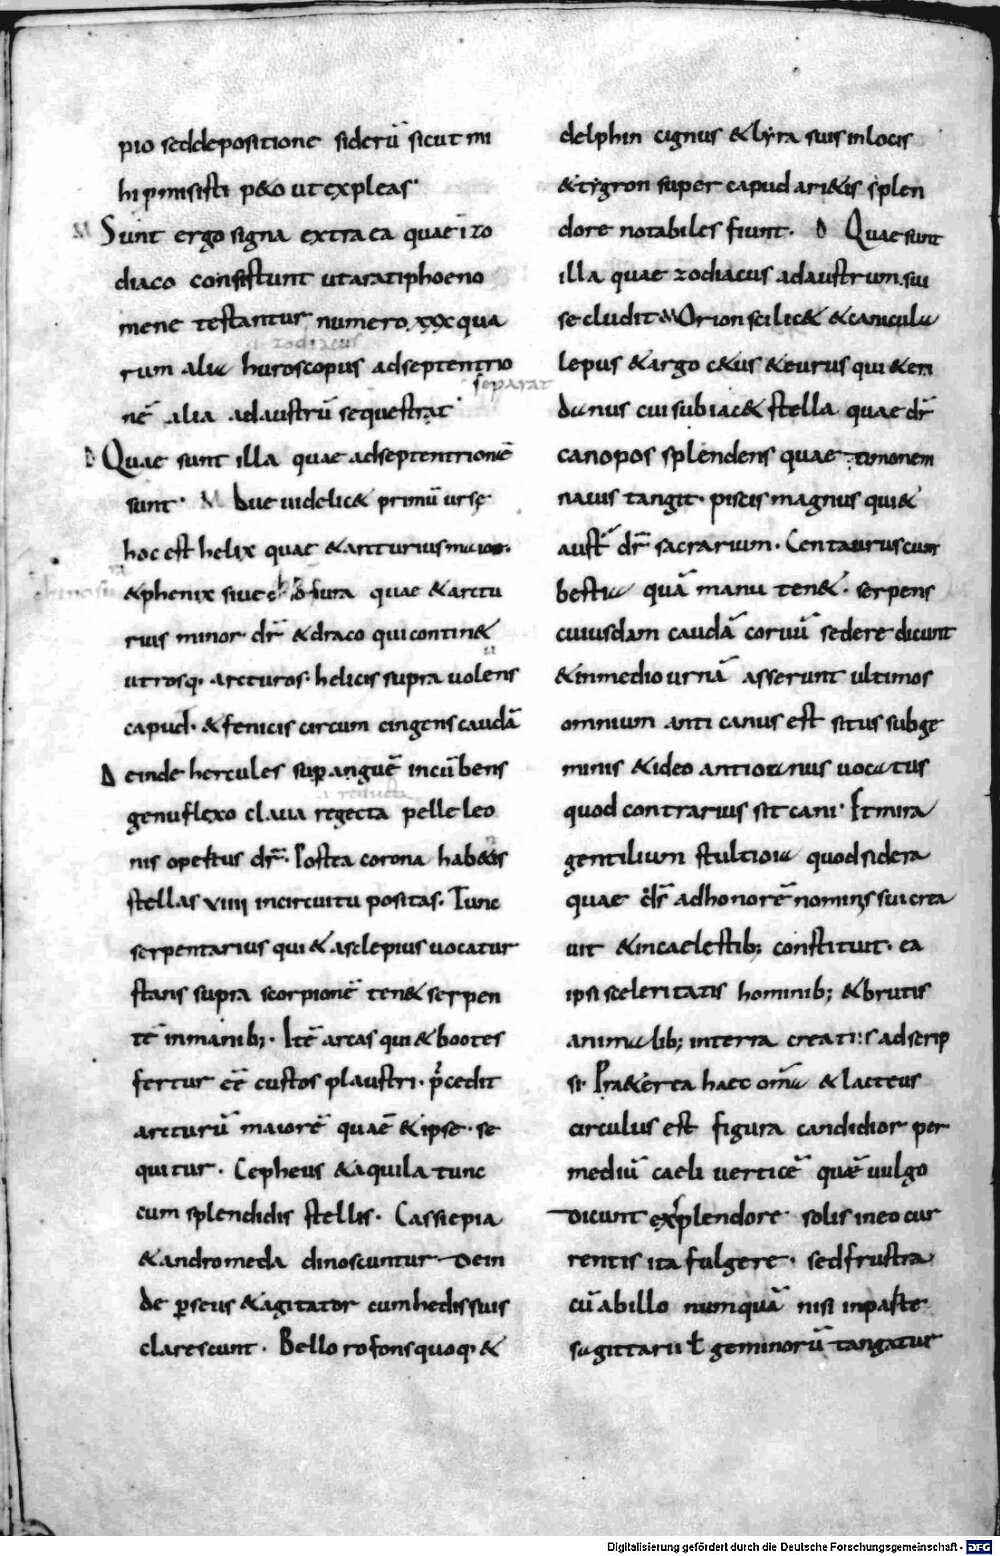 pio seddepositione siderū sicut mi
hi p̱misisti p&o ut expleas·
M Sunt ergo signa extra ea quae ī zo
diaco consistunt ut aratiphoeno
mene testantur numero xxx qua
zodiacus
rum alia huroscopus adseptentrio
separat
nē alia adaustrū sequestrat·
D Quae sunt illa quae adseptentrionē
sunt· M Due uidelic& primū urse
hoc est helix quae &arcturius maior·
&phenix siue osura quae &arctu
rius minor· dr̄ &draco qui contin&
utrosq· arcturos· helicis supra uolens
capud· & fenicis circum cingens caudā
Deinde hercules sup̱ anguē incūbens
a reducta
genuflexo claua regecta pelle leo
nis opertus dr̄· Postea corona habens
stellas viiii incircuitu positas· Tunc
serpentarius qui &asclepius uocatur
stans supra scorpionē ten& serpen
tē inmanib;· Itē artas qui &bootes
fertur eē custos plaustri· p̄cedit
arcturū maiorē quaē &ipse· se
quitur· Cepheus &aquila tunc
cum splendidis stellis· Cassiepia
&andromeda dinoscuntur Dein
de p̱seus &agitator cum hedis suis
clarescunt· Bello rofons quoq· &
delphin cignus &lyra suis inlocis
&tygron super capud ari&is splen
dore notabiles fiunt· D Quae sunt
illa quae zodiacus adaustrum sui
secludit M Orion scilic& &canicula
lepus &argo c&us &eurus qui &eri
danus cui subiac& stella quae dr̄
canopos splendens quae timonem
nauis tangit· piscis magnus qui&
aust̄ dr̄ sacrarium· Centaurus cum
bestia quā manu ten&· serpens
cuiusdam caudā coruū sedere dicunt
&inmedio urnā asserunt ultimos
omnium anti canus est situs subge
minis &ideo antiocanus uocatus
quod contrarius sit cani· Et mira
gentilium stultioia quod sidera
quae d̄s adhonorē nominis sui crea
uit &incaelestib; constituit· ea
ipsi sceleritatis hominib; &brutis
animalib; interra creatis adscrip
si· Pra&erea haec omīa &lacteus
circulus est figura candidior per
mediū caeli uerticē quē uulgo
dicunt exsplendore solis ineo cur
rentis ita fulgere· sed frustra
cū abillo numquā nisi inparte
sagittarii ł geminorū tangatur
Digitalisierung gefördert durch die Deutsche Forschungsgemeinschaft - DFG